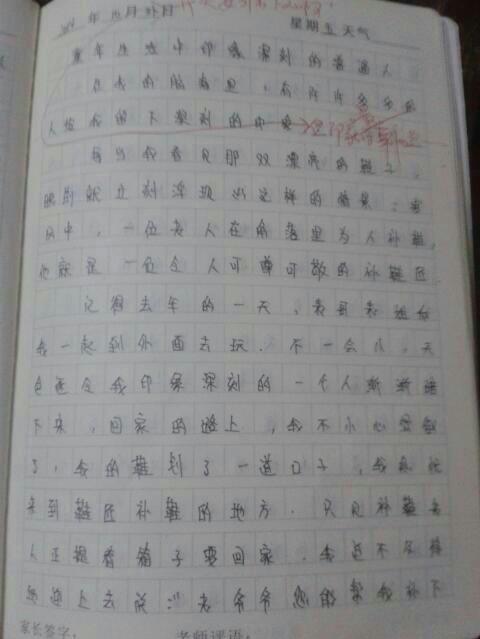 年 月 日 星期五 天气
童年生活中印象深刻的普通人
在我的脑海里,有许许多多的
人给我留下深刻的印象
每当我看见那双漂亮的鞋子,
眼前就立刻浮现出这样的情景:寒
风中,一位老人在角落里为人补鞋,
他就是一位令人可尊可敬的补鞋匠。
记得去年的一天,表哥表姐和
我一起到外面去玩.不一会儿,天
色逐令我印象深刻的一个人渐渐暗
下来,回家的路上,我不小心
了,我的鞋划了一道口子,我急忙
来到鞋匠补鞋的地方.只见补鞋老
人正提着箱子要回家.我迫不及待
地迎上去说:老爷爷您能帮我补下
家长签字: 老师评语: